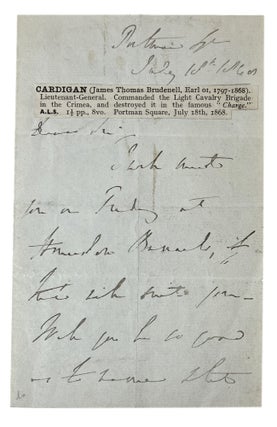 Portman Sq
July 18th 1868
CARDIGAN (James Thomas Brudenell, Earl of, 1797-1868).
Lieutenant-General. Commanded the Light Cavalry Brigade
in the Crimea, and destroyed it in the famous "Charge."
A.L.S. 1½ pp., 8vo. Portman Square, July 18th, 1868.
Dear Sir,
I shall
you on Tuesday at
Barracks, if
this will suit you—
Will you be so good
as to